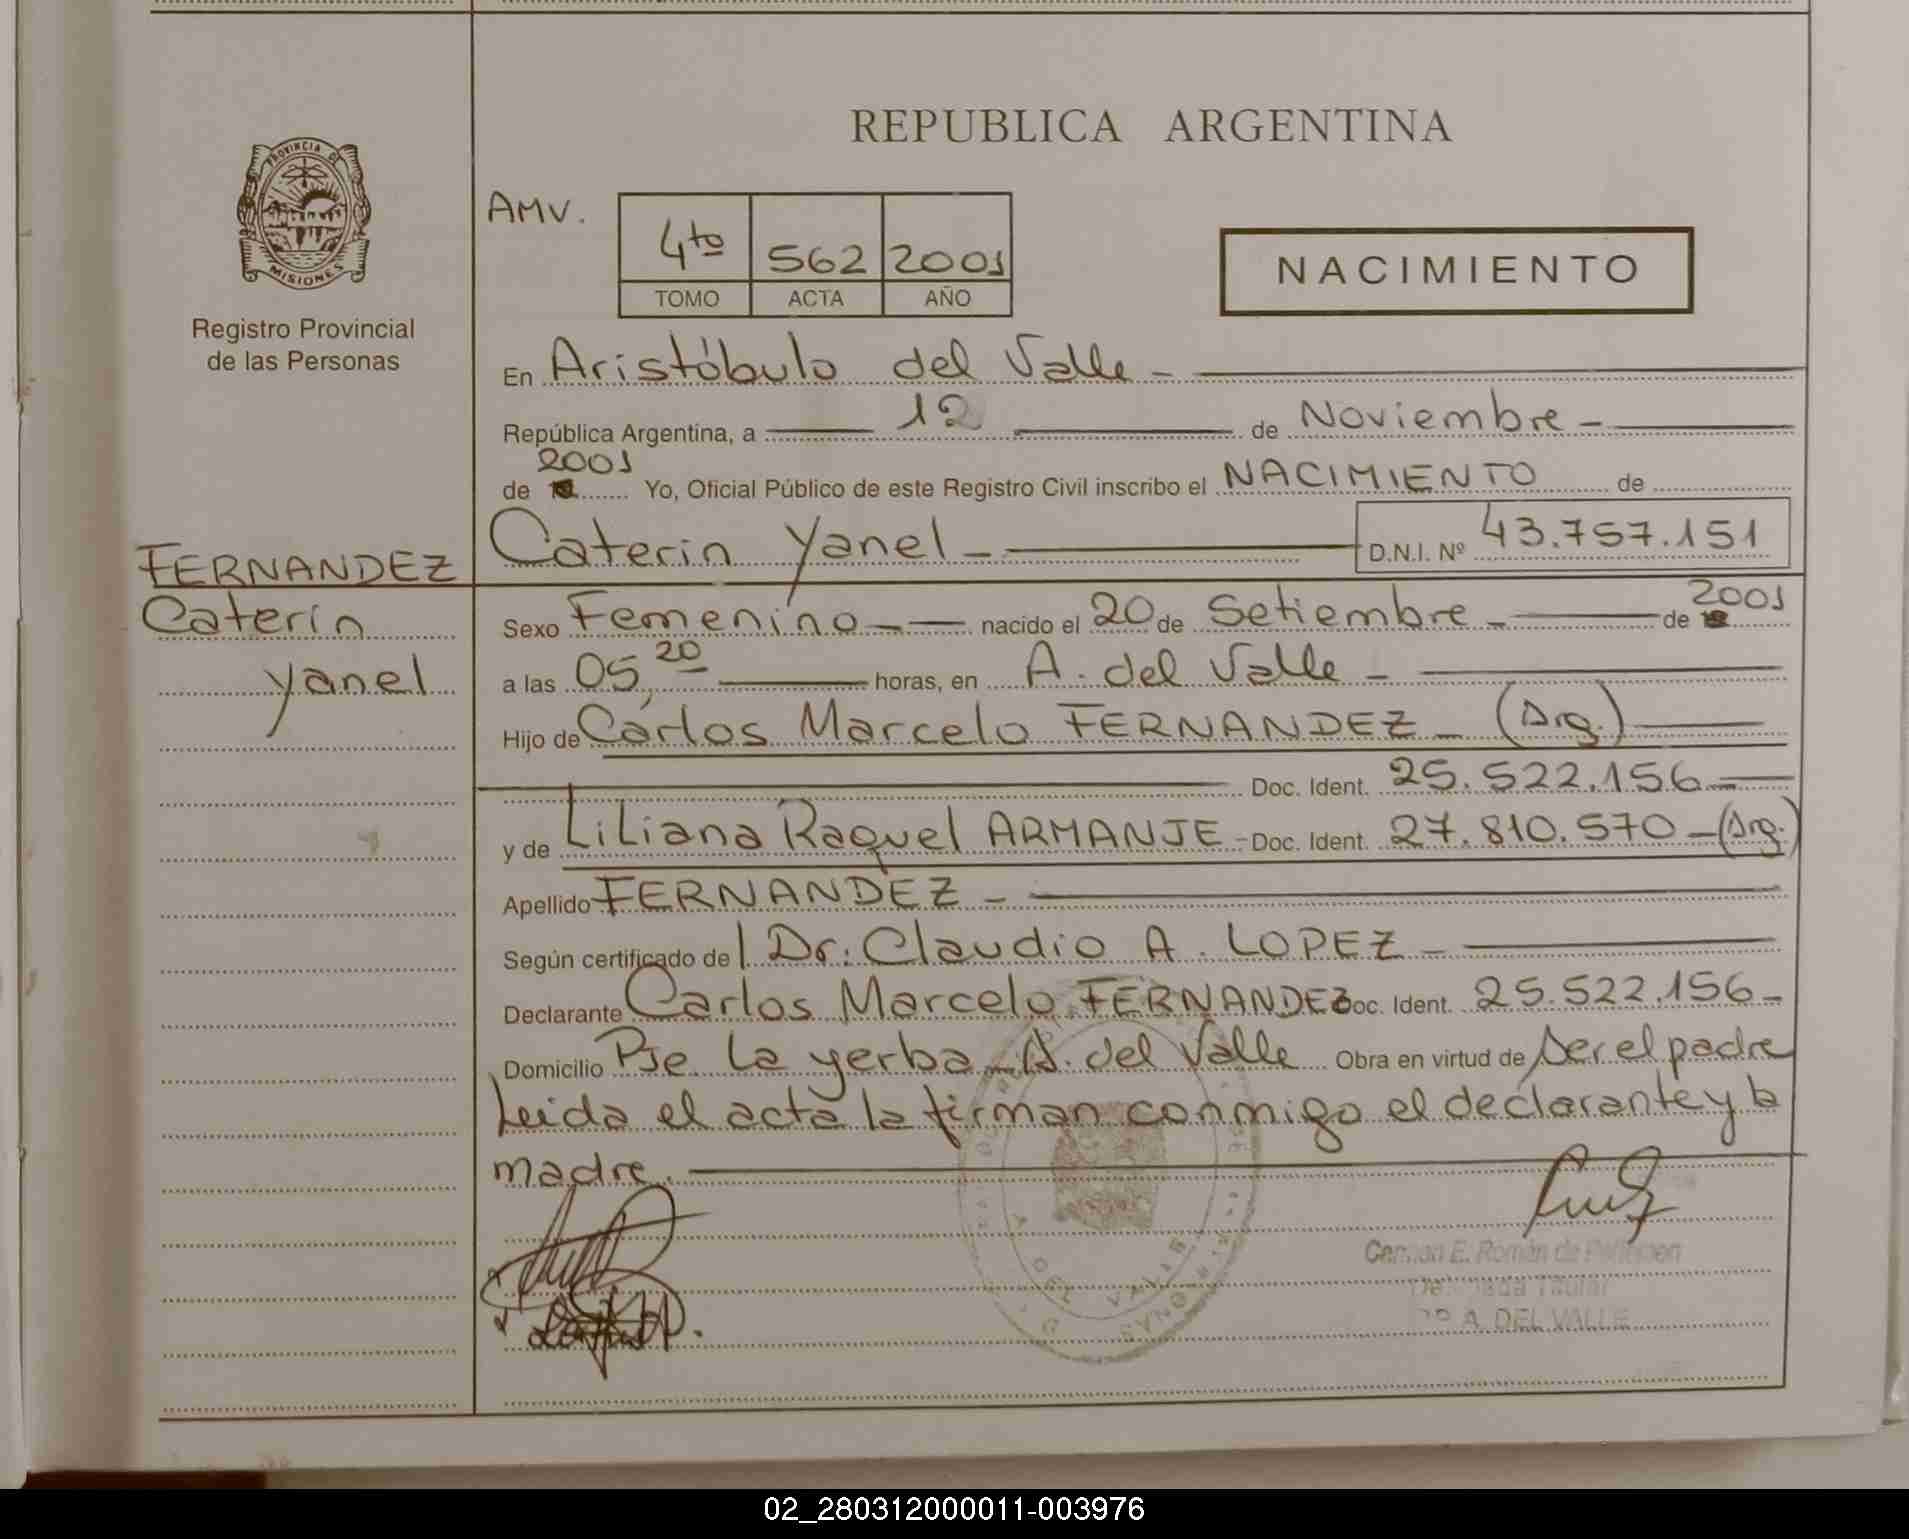 REPUBLICA ARGENTINA
PROVINCIA DE
MISIONES
Registro Provincial
de las Personas
AMV.
4to 562 2001
TOMO ACTA AÑO
NACIMIENTO
En Aristóbulo del Valle -
República Argentina, a 12 de Noviembre -
2001
de Yo, Oficial Público de este Registro Civil inscribo el NACIMIENTO de
Caterin Yanel - D.N.I. Nº 43.757.151
FERNANDEZ
Caterin
Yanel
2001
Sexo Femenino - nacido el 20 de Setiembre - de
a las 05,20 horas, en A. del Valle -
Hijo de Carlos Marcelo FERNANDEZ - (Arg.)
Doc. Ident. 25.522.156 -
y de Liliana Raquel ARMANJE - Doc. Ident. 27.810.570 - (Arg.)
Apellido FERNANDEZ -
Según certificado de Dr. Claudio A. LOPEZ -
Declarante Carlos Marcelo FERNANDEZ Doc. Ident. 25.522.156 -
Domicilio Pje La yerba - A. del Valle Obra en virtud de ser el padre
Leida el acta la firman conmigo el declarante y la
madre.
E. Román de
Titular
A. DEL VALLE
02_280312000011-003976